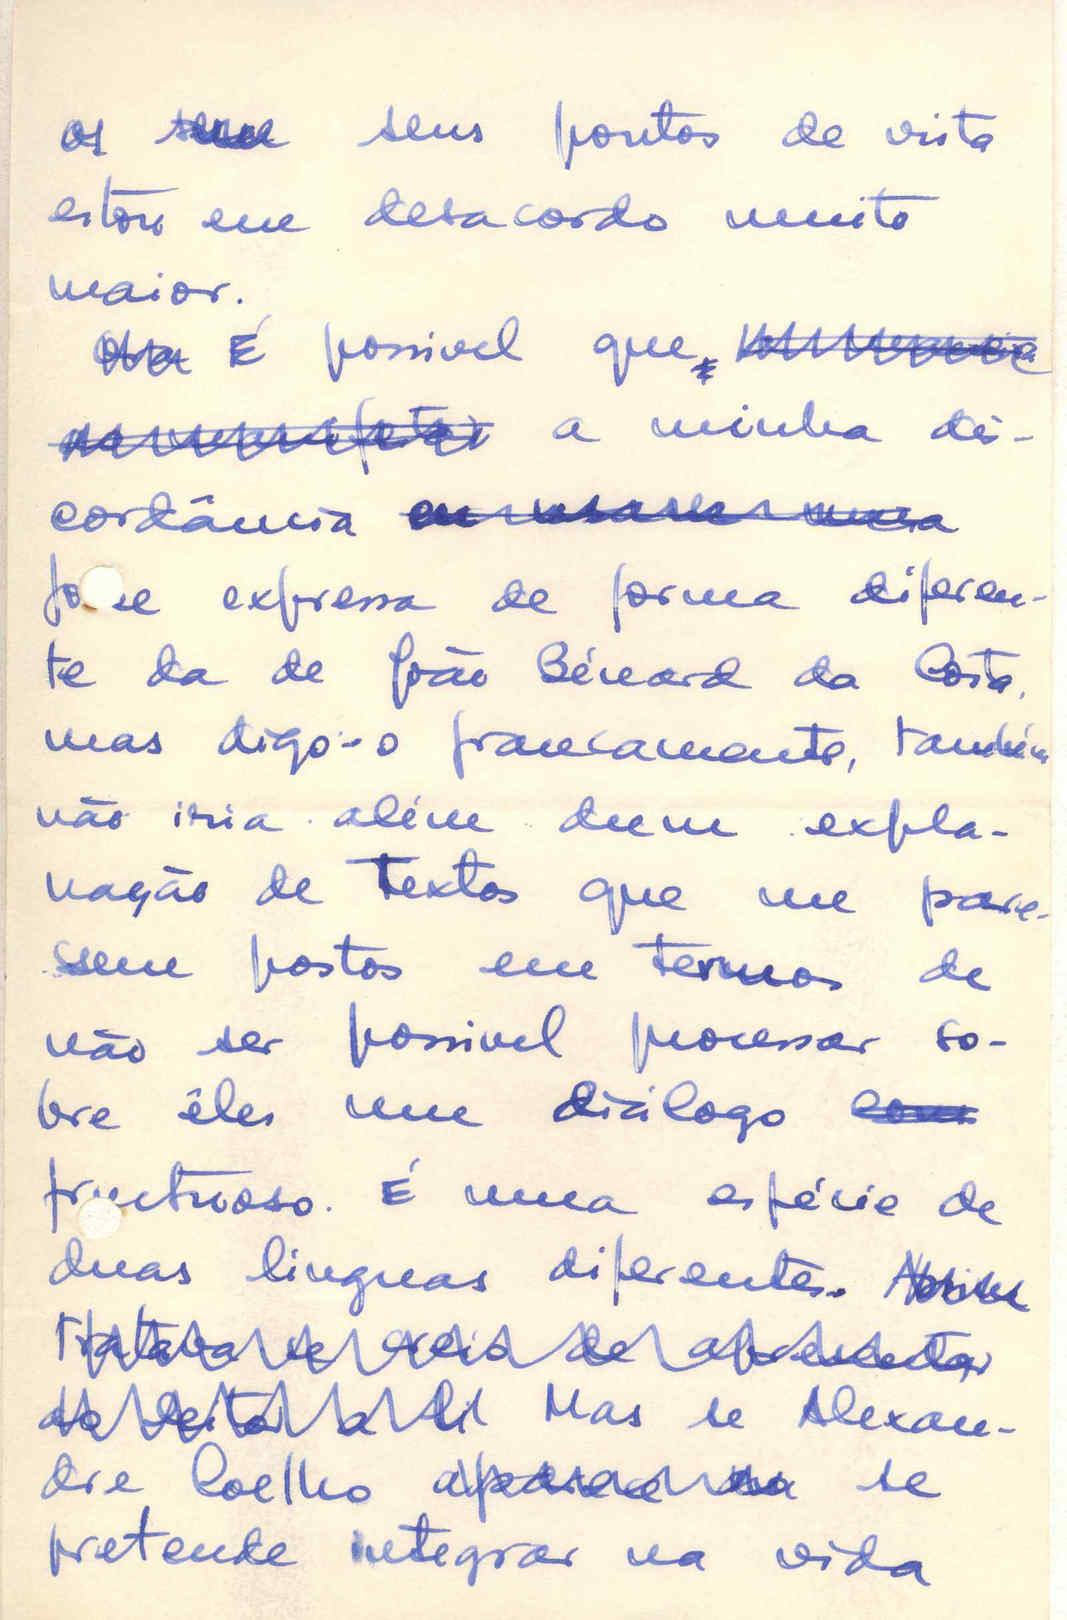 os seus pontos de vista
estão em desacordo muito
maior.
Ora É possivel que,
a minha dis-
cordância
fosse expressa de forma diferen-
te da de João Bénard da Costa,
mas digo-o francamente, também
não iria além dum expla-
nação de textos que me pare-
ssem postos em termos de
não ser possivel processar so-
bre êles um diálogo com
fructuoso. É uma espécie de
duas linguas diferentes. Assim
Tratava se creio de apresentar
ao leitor a Mas se Alexan-
dre Coelho aparece na se
pretende integrar na vida